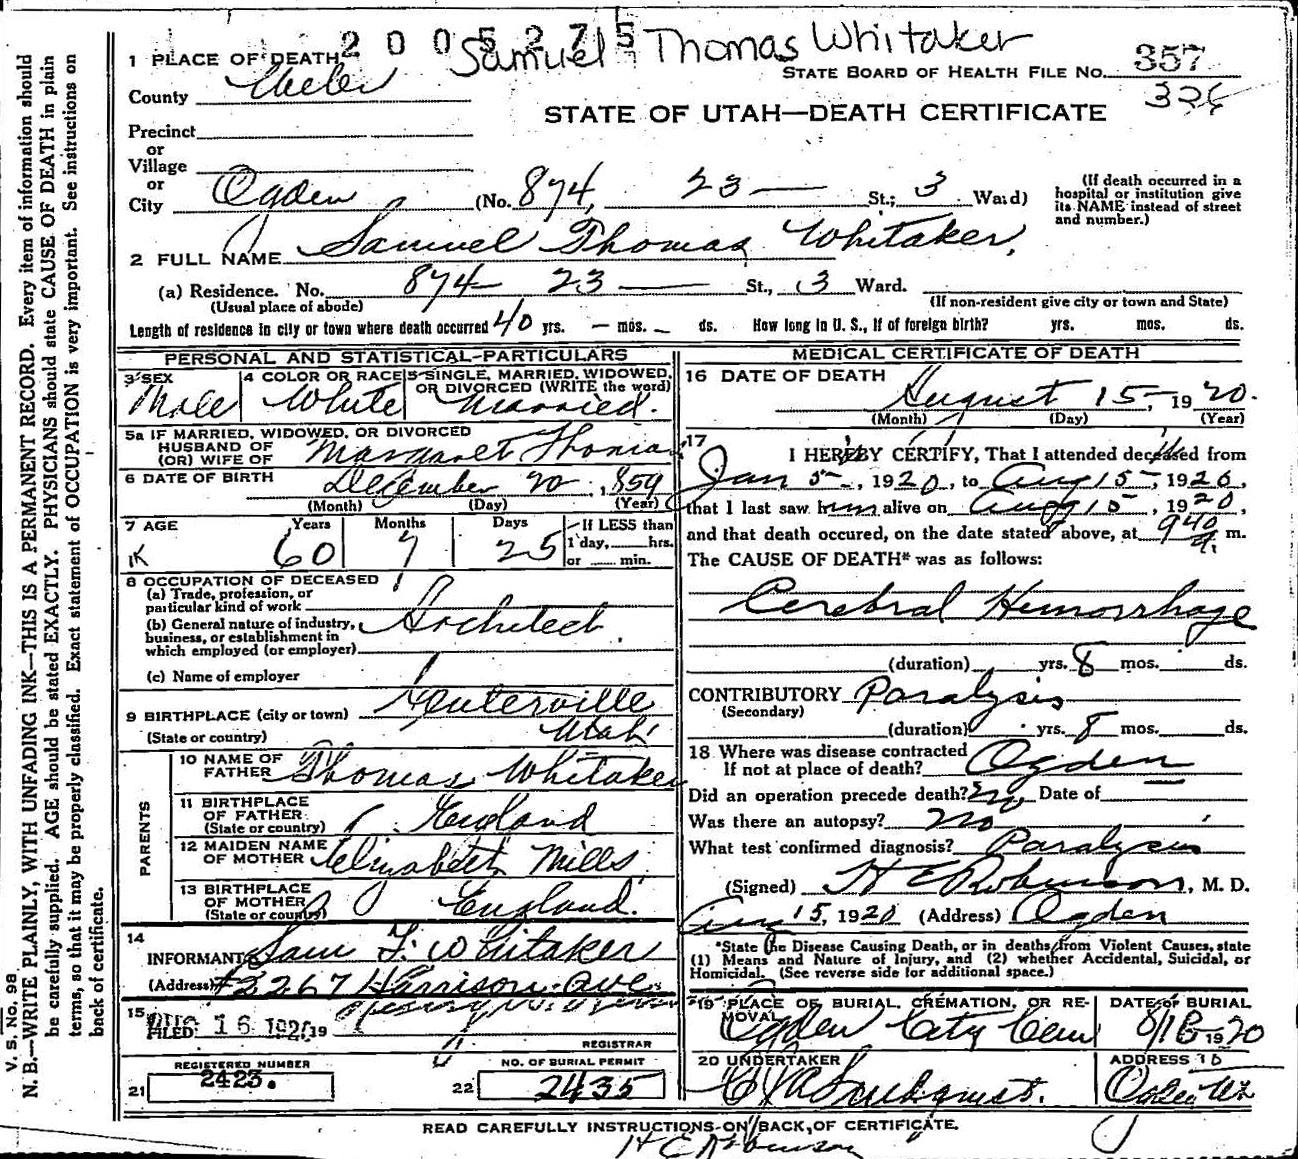 2005275
Samuel Thomas Whitaker
1 PLACE OF DEATH
STATE BOARD OF HEALTH FILE NO. 357
County Weber
326
STATE OF UTAH—DEATH CERTIFICATE
Precinct
or
Village
or
City Ogden (No. 874, 23 — St.; 3 Ward)
(If death occurred in a hospital or institution give its NAME instead of street and number.)
2 FULL NAME Samuel Thomas Whitaker,
(a) Residence. No. 874 23 — St., 3 Ward.
(Usual place of abode) (If non-resident give city or town and State)
Length of residence in city or town where death occurred 40 yrs. — mos. — ds. How long in U. S., if of foreign birth? yrs. mos. ds.
PERSONAL AND STATISTICAL PARTICULARS
3 SEX Male
4 COLOR OR RACE White
5 SINGLE, MARRIED, WIDOWED, OR DIVORCED (WRITE the word) Married.
5a IF MARRIED, WIDOWED, OR DIVORCED
HUSBAND OF
(OR) WIFE OF Margaret Thomas
6 DATE OF BIRTH December 20, 1859
(Month) (Day) (Year)
7 AGE Years Months Days
1K 60 7 25
If LESS than 1 day, hrs. or min.
8 OCCUPATION OF DECEASED
(a) Trade, profession, or particular kind of work
(b) General nature of industry, business, or establishment in which employed (or employer) Architect.
(c) Name of employer
9 BIRTHPLACE (city or town) Centerville
(State or country) Utah
PARENTS
10 NAME OF FATHER Thomas Whitaker
11 BIRTHPLACE OF FATHER (State or country) England
12 MAIDEN NAME OF MOTHER Elizabeth Mills,
13 BIRTHPLACE OF MOTHER (State or country) England.
14
INFORMANT Sam F. Whitaker
(Address) #3267 Harrison Ave
15
FILED AUG 16 1920 19
REGISTRAR
REGISTERED NUMBER
21 2423.
NO. OF BURIAL PERMIT
22 2435
MEDICAL CERTIFICATE OF DEATH
16 DATE OF DEATH August 15, 1920.
(Month) (Day) (Year)
17
I HEREBY CERTIFY, That I attended deceased from
Jan 5, 1920, to Aug 15, 1920,
that I last saw him alive on Aug 15, 1920,
and that death occured, on the date stated above, at 940 a. m.
The CAUSE OF DEATH* was as follows:
Cerebral Hemorrhage
(duration) yrs. 8 mos. ds.
CONTRIBUTORY Paralysis
(Secondary)
(duration) yrs. 8 mos. ds.
18 Where was disease contracted
If not at place of death? Ogden
Did an operation precede death? no Date of
Was there an autopsy? no
What test confirmed diagnosis? Paralysis
(Signed) H E Robinson, M. D.
Aug 15, 1920 (Address) Ogden
*State the Disease Causing Death, or in deaths from Violent Causes, state
(1) Means and Nature of Injury, and (2) whether Accidental, Suicidal, or
Homicidal. (See reverse side for additional space.)
19 PLACE OF BURIAL, CREMATION, OR REMOVAL Ogden City Cem
DATE of BURIAL 8/18 1920
20 UNDERTAKER
ADDRESS
Ogden Ut
READ CAREFULLY INSTRUCTIONS ON BACK OF CERTIFICATE.
H E Robinson
V. S. No. 98
N. B.—WRITE PLAINLY, WITH UNFADING INK—THIS IS A PERMANENT RECORD. Every item of information should
be carefully supplied. AGE should be stated EXACTLY. PHYSICIANS should state CAUSE OF DEATH in plain
terms, so that it may be properly classified. Exact statement of OCCUPATION is very important. See instructions on
back of certificate.